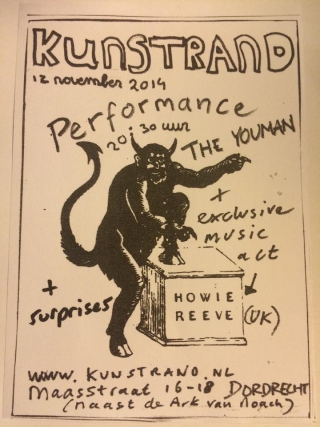 KUNSTRAND
12 november 2014
Performance
20:30 uur
THE YOUMAN
+
exclusive
music
act
+
surprises
HOWIE
REEVE
(UK)
WWW.KUNSTRAND.NL
Maasstraat 16-18 DORDRECHT
(naast de Ark van Noach)